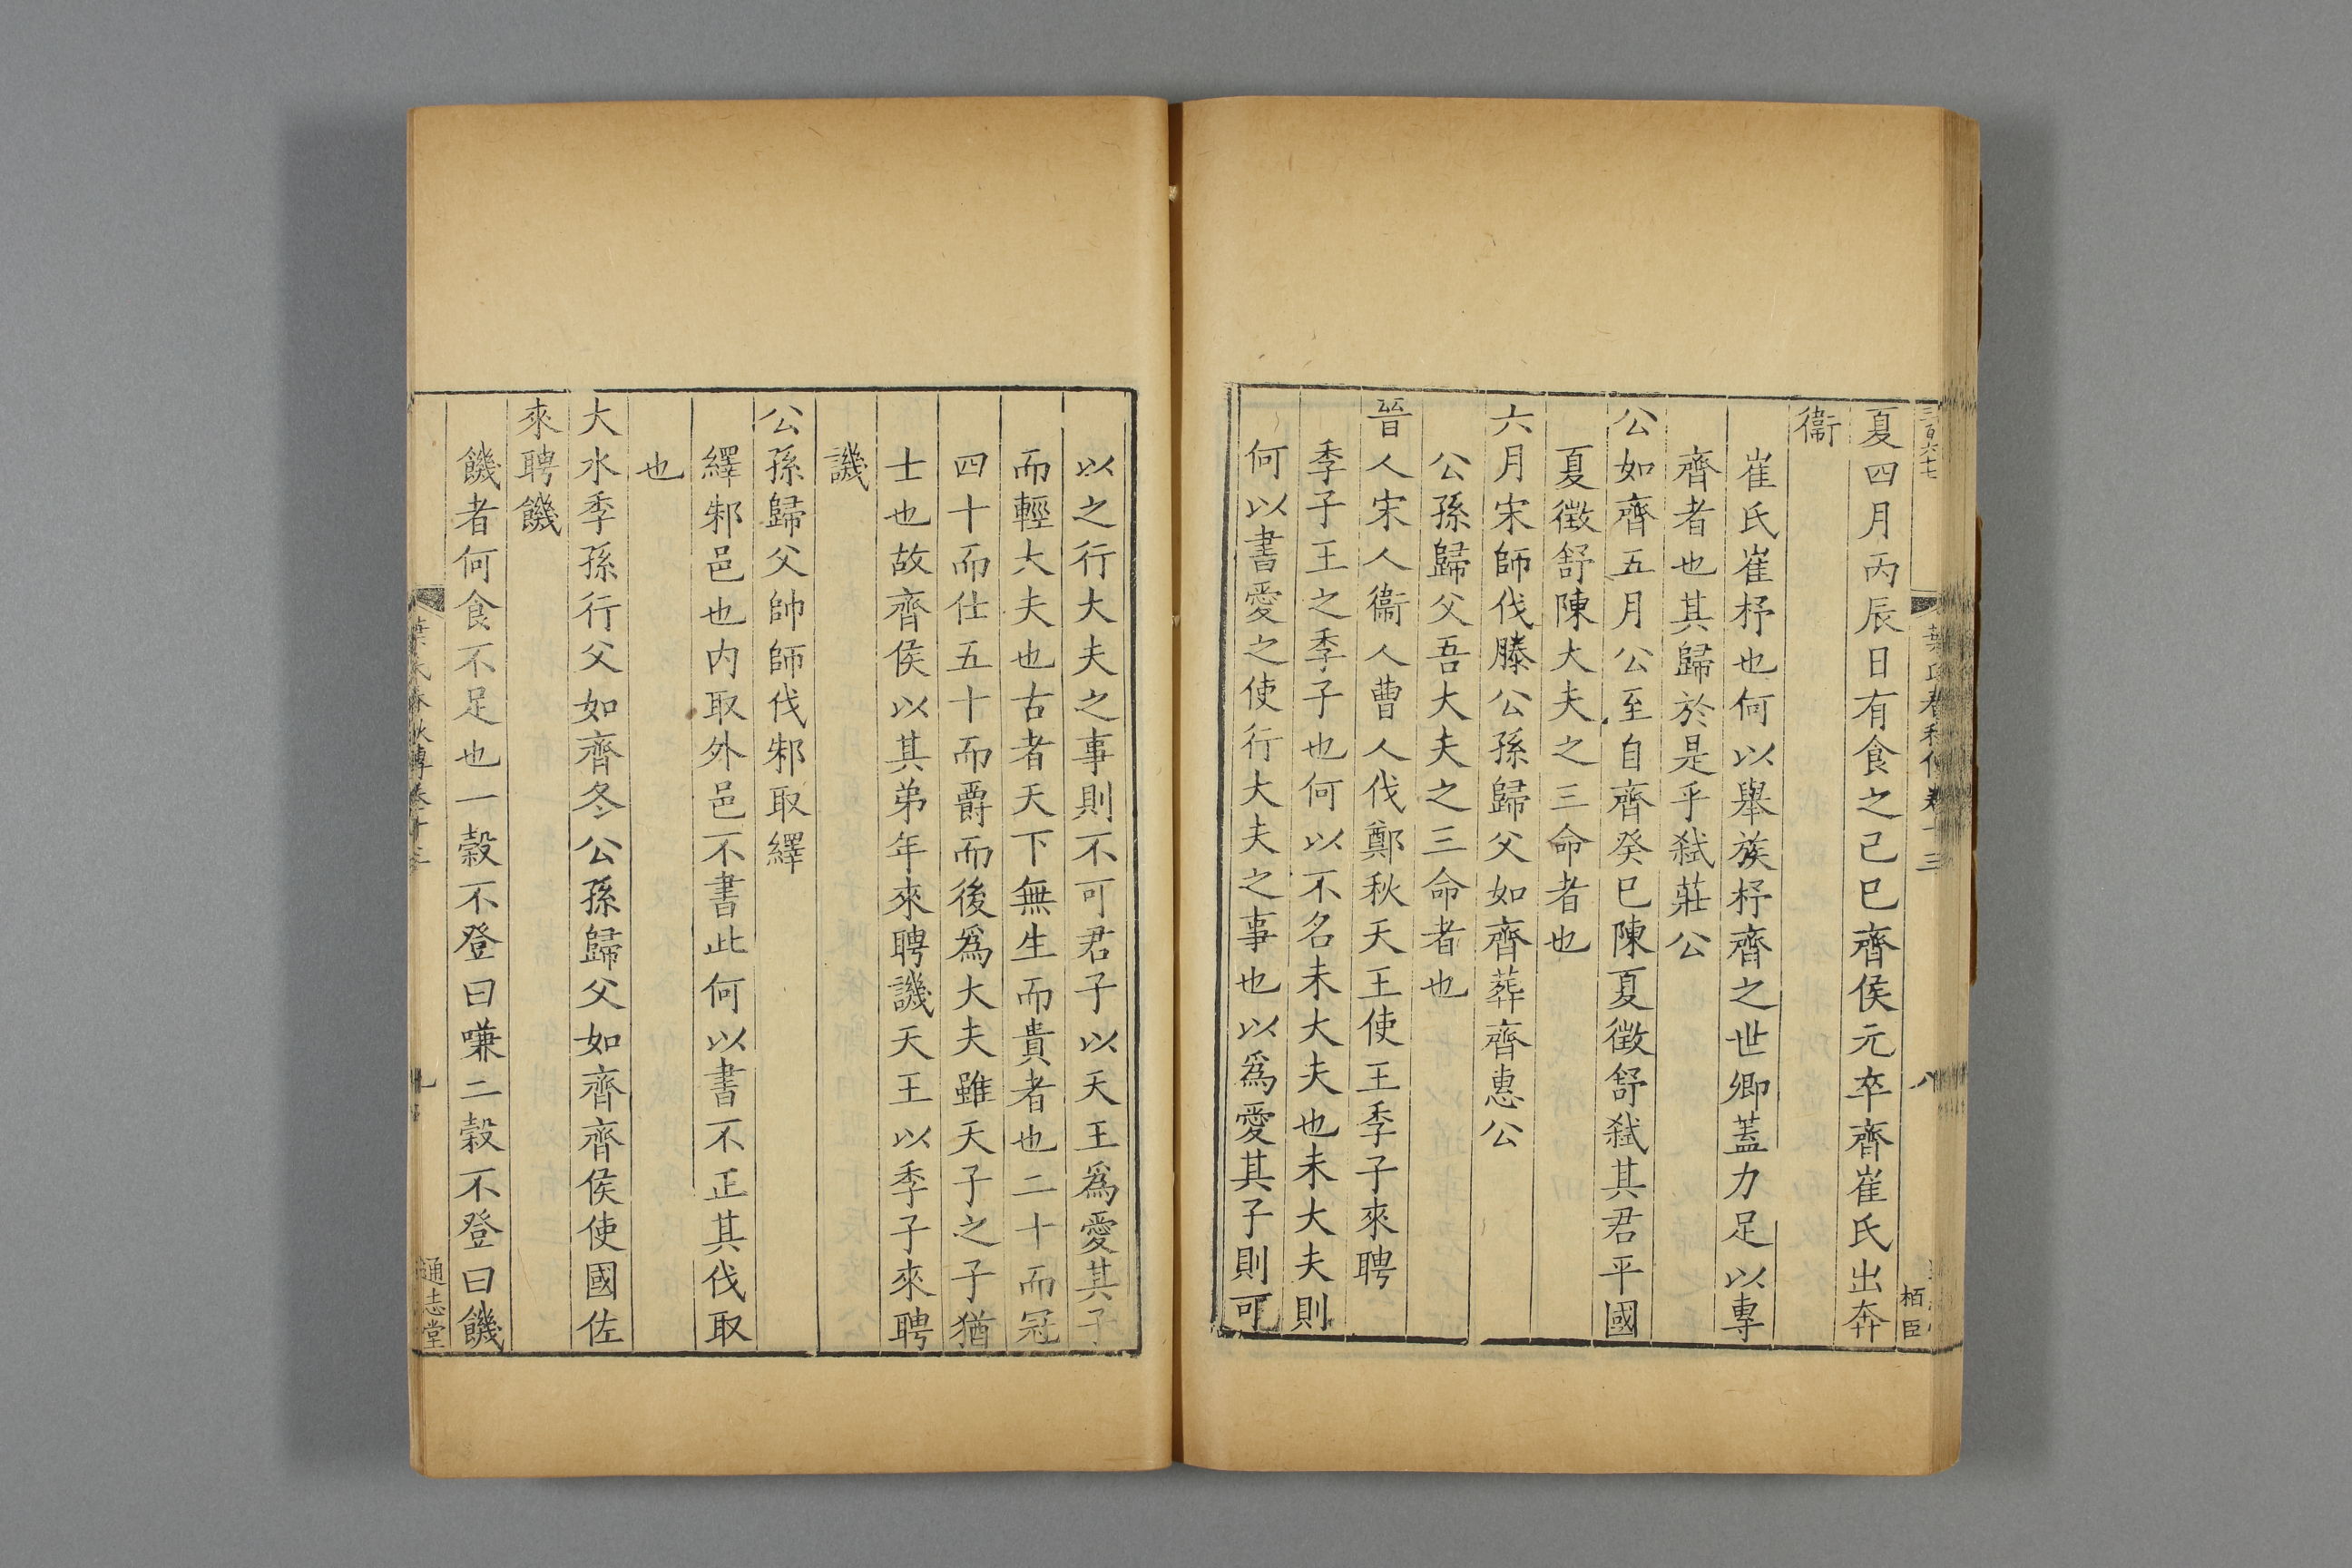 夏四月丙辰日有食之己巳齊侯元卒齊崔氏出奔
衞
崔氏崔杼也何以舉族杼齊之世卿蓋力足以專
齊者也其歸於是乎弑莊公
公如齊五月公至自齊癸巳陳夏徵舒弑其君平國
夏徵舒陳大夫之三命者也
六月宋師伐滕公孫歸父如齊葬齊惠公
公孫歸父吾大夫之三命者也
晉人宋人衞人曹人伐鄭秋天王使王季子來聘
季子王之季子也何以不名未大夫也未大夫則
何以書愛之使行大夫之事也以爲愛其子則可
以之行大夫之事則不可君子以天王爲愛其子
而輕大夫也古者天下無生而貴者也二十而冠
四十而仕五十而爵而後爲大夫雖天子之子猶
士也故齊侯以其弟年來聘譏天王以季子來聘
譏
公孫歸父帥師伐邾取繹
繹邾邑也内取外邑不書此何以書不正其伐取
也
大水季孫行父如齊冬公孫歸父如齊齊侯使國佐
來聘饑
饑者何食不足也一穀不登曰嗛二穀不登曰饑
三百六十七
葉氏春秋傳卷十三
八
栢臣
葉氏春秋傳卷十三
通志堂